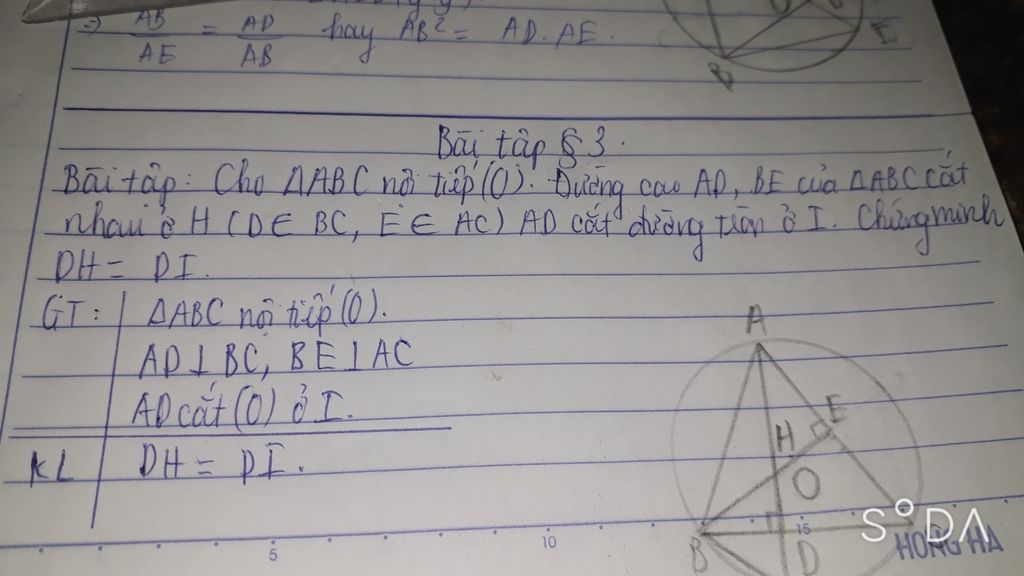 ⇒ AB/AE = AD/AB hay AB² = AD. AE.
B
E
Bài tập § 3.
Bài tập: Cho ΔABC nội tiếp (O). Đường cao AD, BE của ΔABC cắt
nhau ở H (D ∈ BC, E ∈ AC) AD cắt đường tròn ở I. Chứng minh
DH = DI.
GT: ΔABC nội tiếp (O).
AD ⊥ BC, BE ⊥ AC
AD cắt (O) ở I.
KL DH = DI.
A
E
H
O
B
D
5 10 15
S°DA
HONG HA